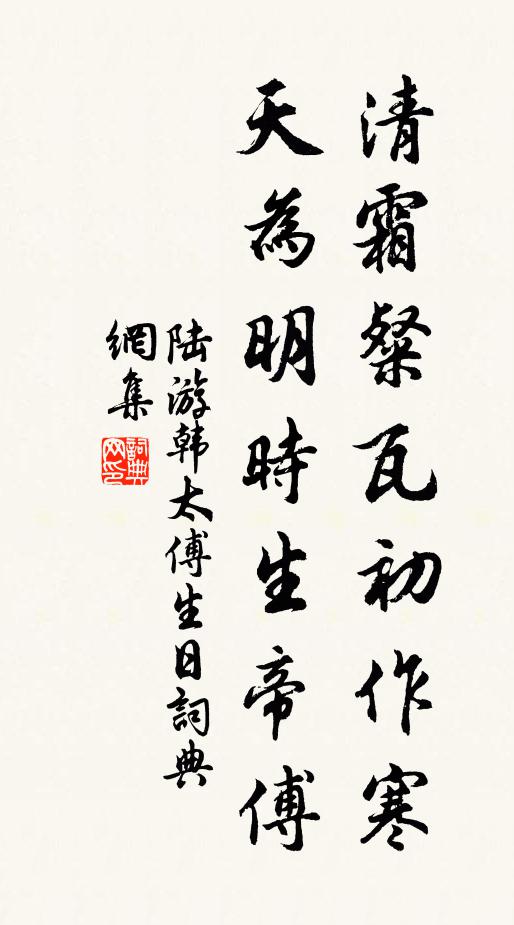 清霜粲瓦初作寒
天為明時生帝傅
陆游韩太傅生日詞典
網集
詞典网印